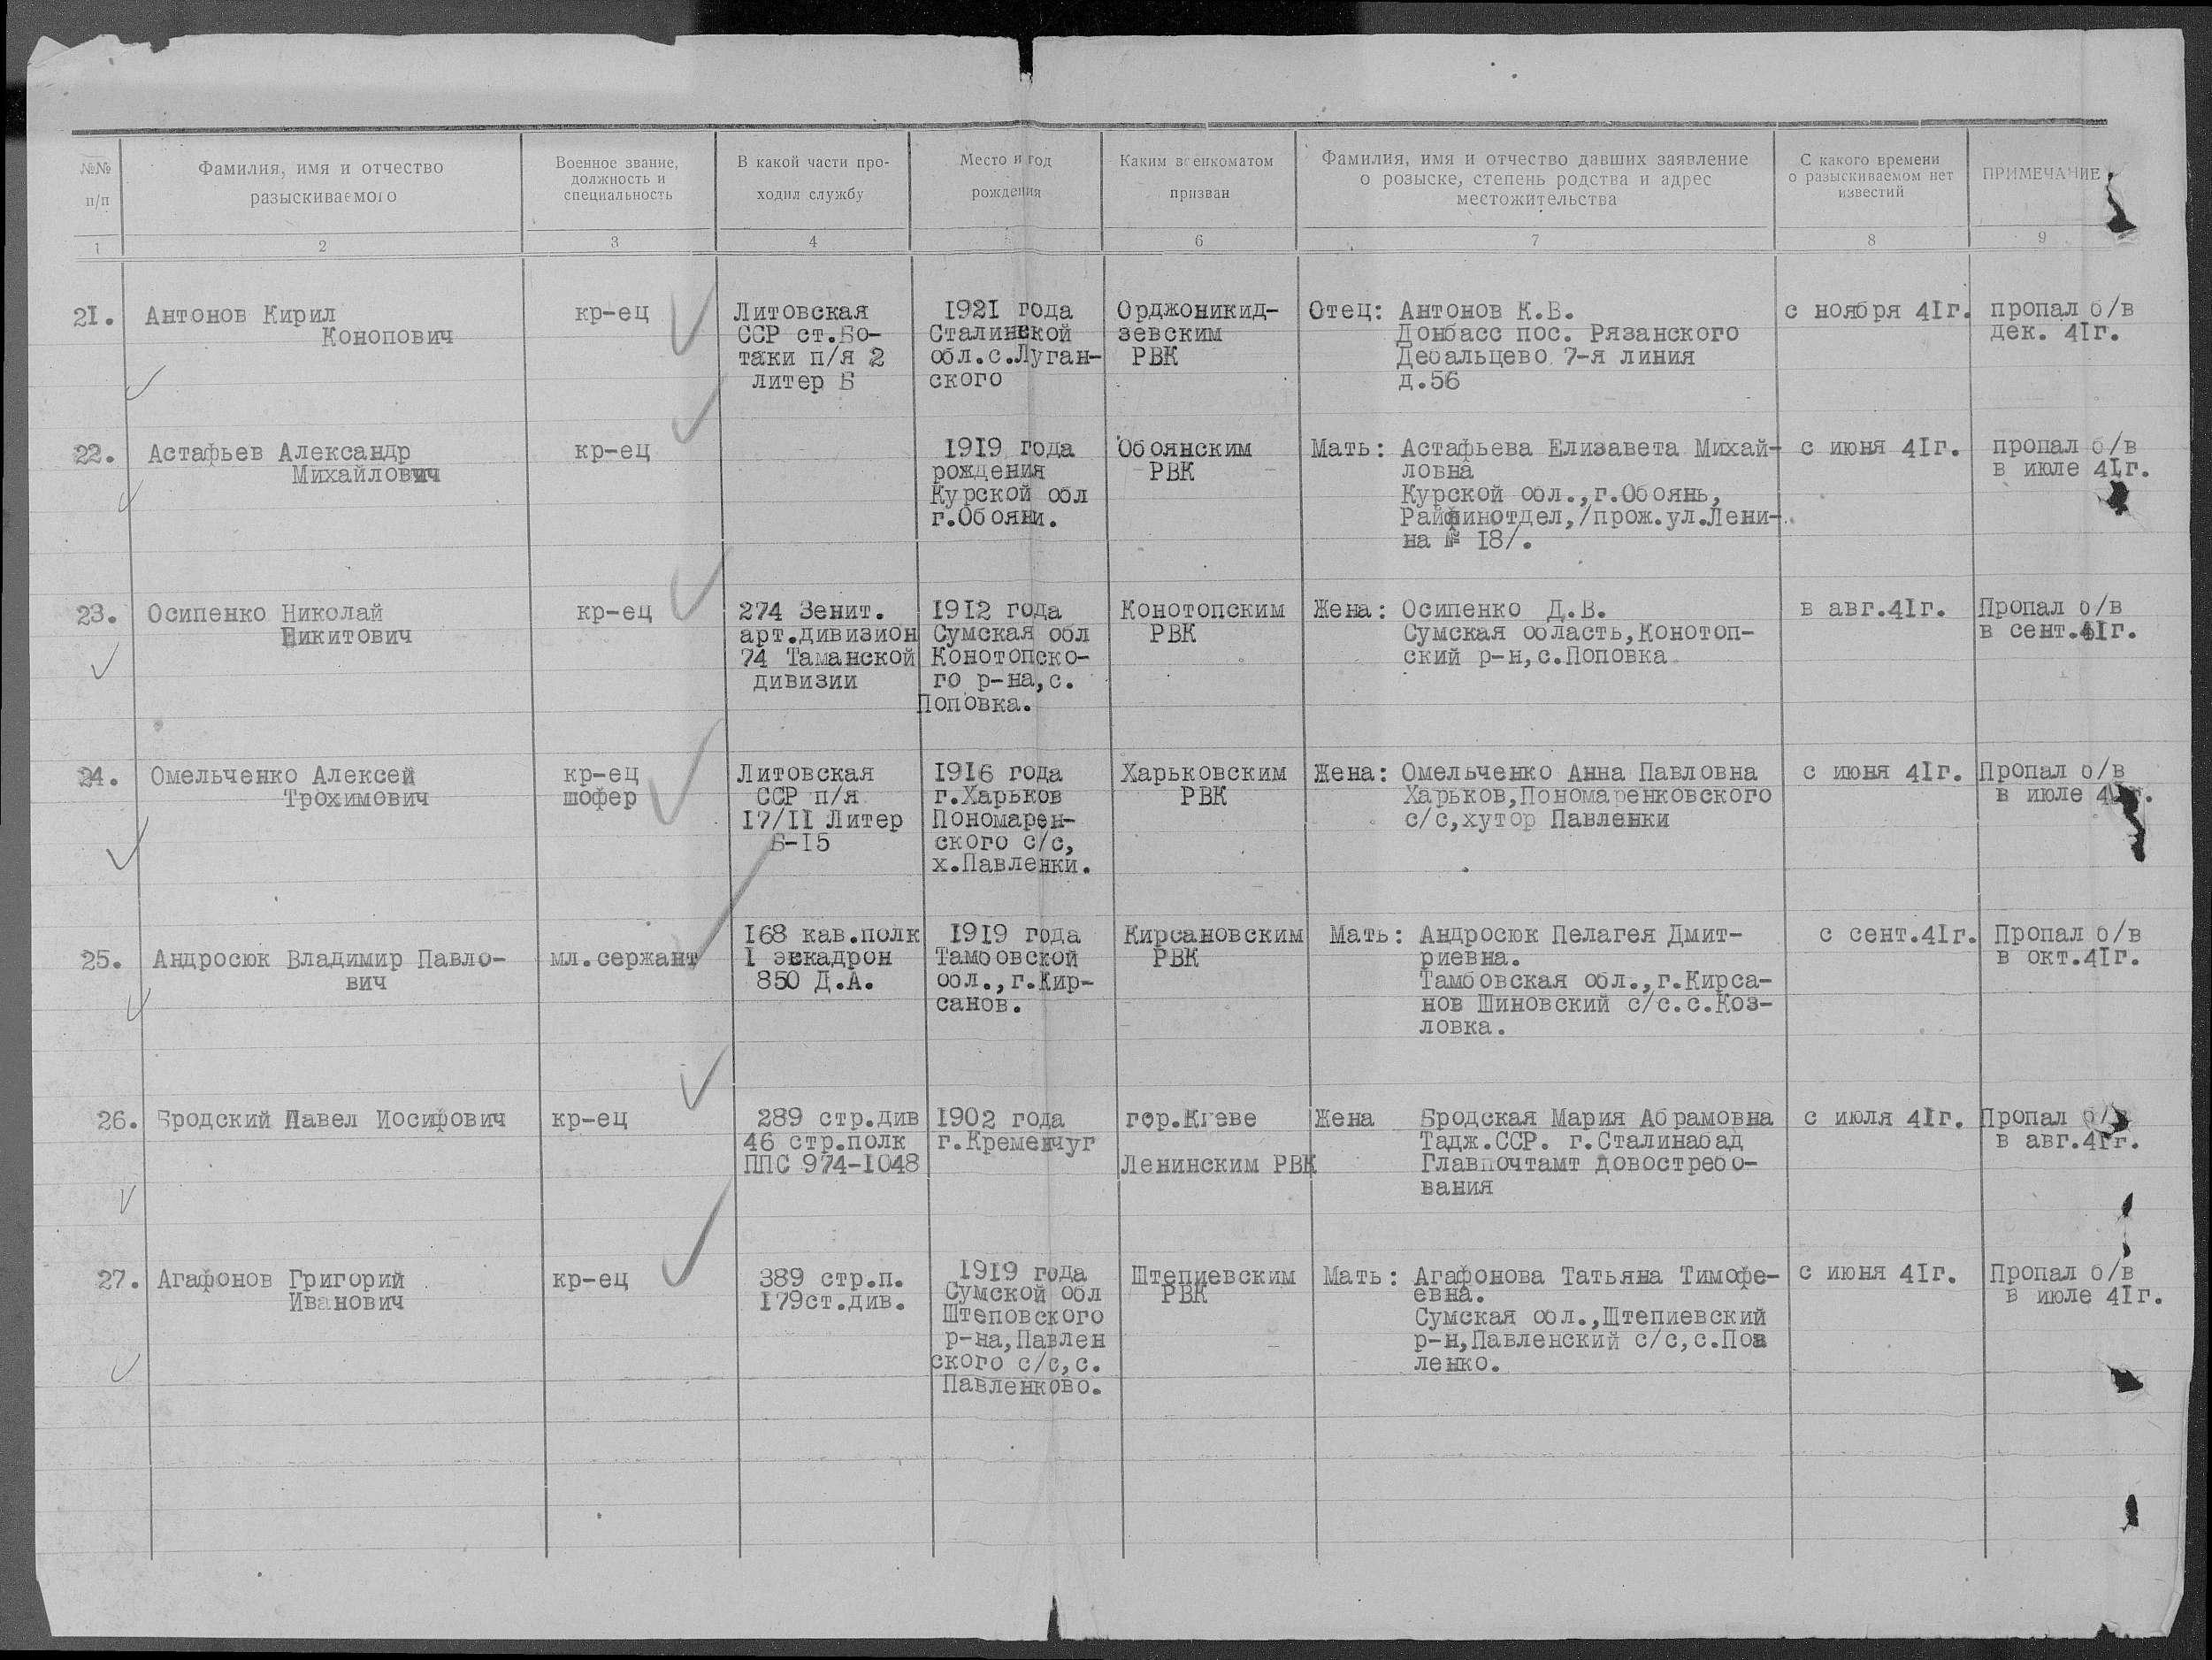 №№ п/п
Фамилия, имя и отчество разыскиваемого
Военное звание, должность и специальность
В какой части проходил службу
Место и год рождения
Каким военкоматом призван
Фамилия, имя и отчество давших заявление о розыске, степень родства и адрес местожительства
С какого времени о разыскиваемом нет известий
ПРИМЕЧАНИЕ
1 2 3 4 5 6 7 8 9
21. Антонов Кирил
Конопович
кр-ец
Литовская
ССР ст.Бо-
таки п/я 2
литер Б
1921 года
Сталинской
обл.с.Луган-
ского
Орджоникид-
зевским
РВК
Отец: Антонов К.В.
Донбасс пос. Рязанского
Дебальцево 7-я линия
д.56
с ноября 41г.
пропал б/в
дек. 41г.
22. Астафьев Александр
Михайлович
кр-ец
1919 года
рождения
Курской обл
г.Обояни.
Обоянским
РВК
Мать: Астафьева Елизавета Михай-
ловна
Курской обл.,г.Обоянь,
Райфинотдел,/прож.ул.Лени-
на № 18/.
с июня 41г.
пропал б/в
в июле 41г.
23. Осипенко Николай
Никитович
кр-ец
274 Зенит.
арт.дивизион
74 Таманской
дивизии
1912 года
Сумская обл
Конотопско-
го р-на,с.
Поповка.
Конотопским
РВК
Жена: Осипенко Д.В.
Сумская область,Конотоп-
ский р-н,с.Поповка
в авг.41г.
Пропал б/в
в сент.41г.
24. Омельченко Алексей
Трохимович
кр-ец
шофер
Литовская
ССР п/я
17/11 Литер
Б-15
1916 года
г.Харьков
Пономарен-
ского с/с,
х.Павленки.
Харьковским
РВК
Жена: Омельченко Анна Павловна
Харьков,Пономаренковского
с/с,хутор Павленки
с июня 41г.
Пропал б/в
в июле 41г.
25. Андросюк Владимир Павло-
вич
мл.сержант
168 кав.полк
1 эскадрон
850 Д.А.
1919 года
Тамбовской
обл.,г.Кир-
санов.
Кирсановским
РВК
Мать: Андросюк Пелагея Дмит-
риевна.
Тамбовская обл.,г.Кирса-
нов Шиновский с/с.с.Коз-
ловка.
с сент.41г.
Пропал б/в
в окт.41г.
26. Бродский Павел Иосифович
кр-ец
289 стр.див
46 стр.полк
ППС 974-1048
1902 года
г.Кременчуг
гор.Киеве
Ленинским РВК
Жена Бродская Мария Абрамовна
Тадж.ССР. г.Сталинабад
Главпочтамт довостребо-
вания
с июля 41г.
Пропал б/в
в авг.41г.
27. Агафонов Григорий
Иванович
кр-ец
389 стр.п.
179ст.див.
1919 года
Сумской обл
Штеповского
р-на,Павлен
ского с/с,с.
Павленково.
Штепиевским
РВК
Мать: Агафонова Татьяна Тимофе-
евна.
Сумская обл.,Штепиевский
р-н,Павленский с/с,с.Пов
ленко.
с июня 41г.
Пропал б/в
в июле 41г.